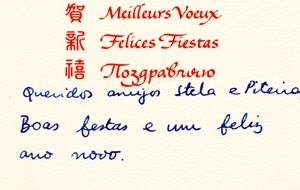 賀 Meilleurs Voeux
新 Felices Fiestas
禧 Поздравляю
Queridos amigos Stela e Piteira
Boas festas e um feliz
ano novo.